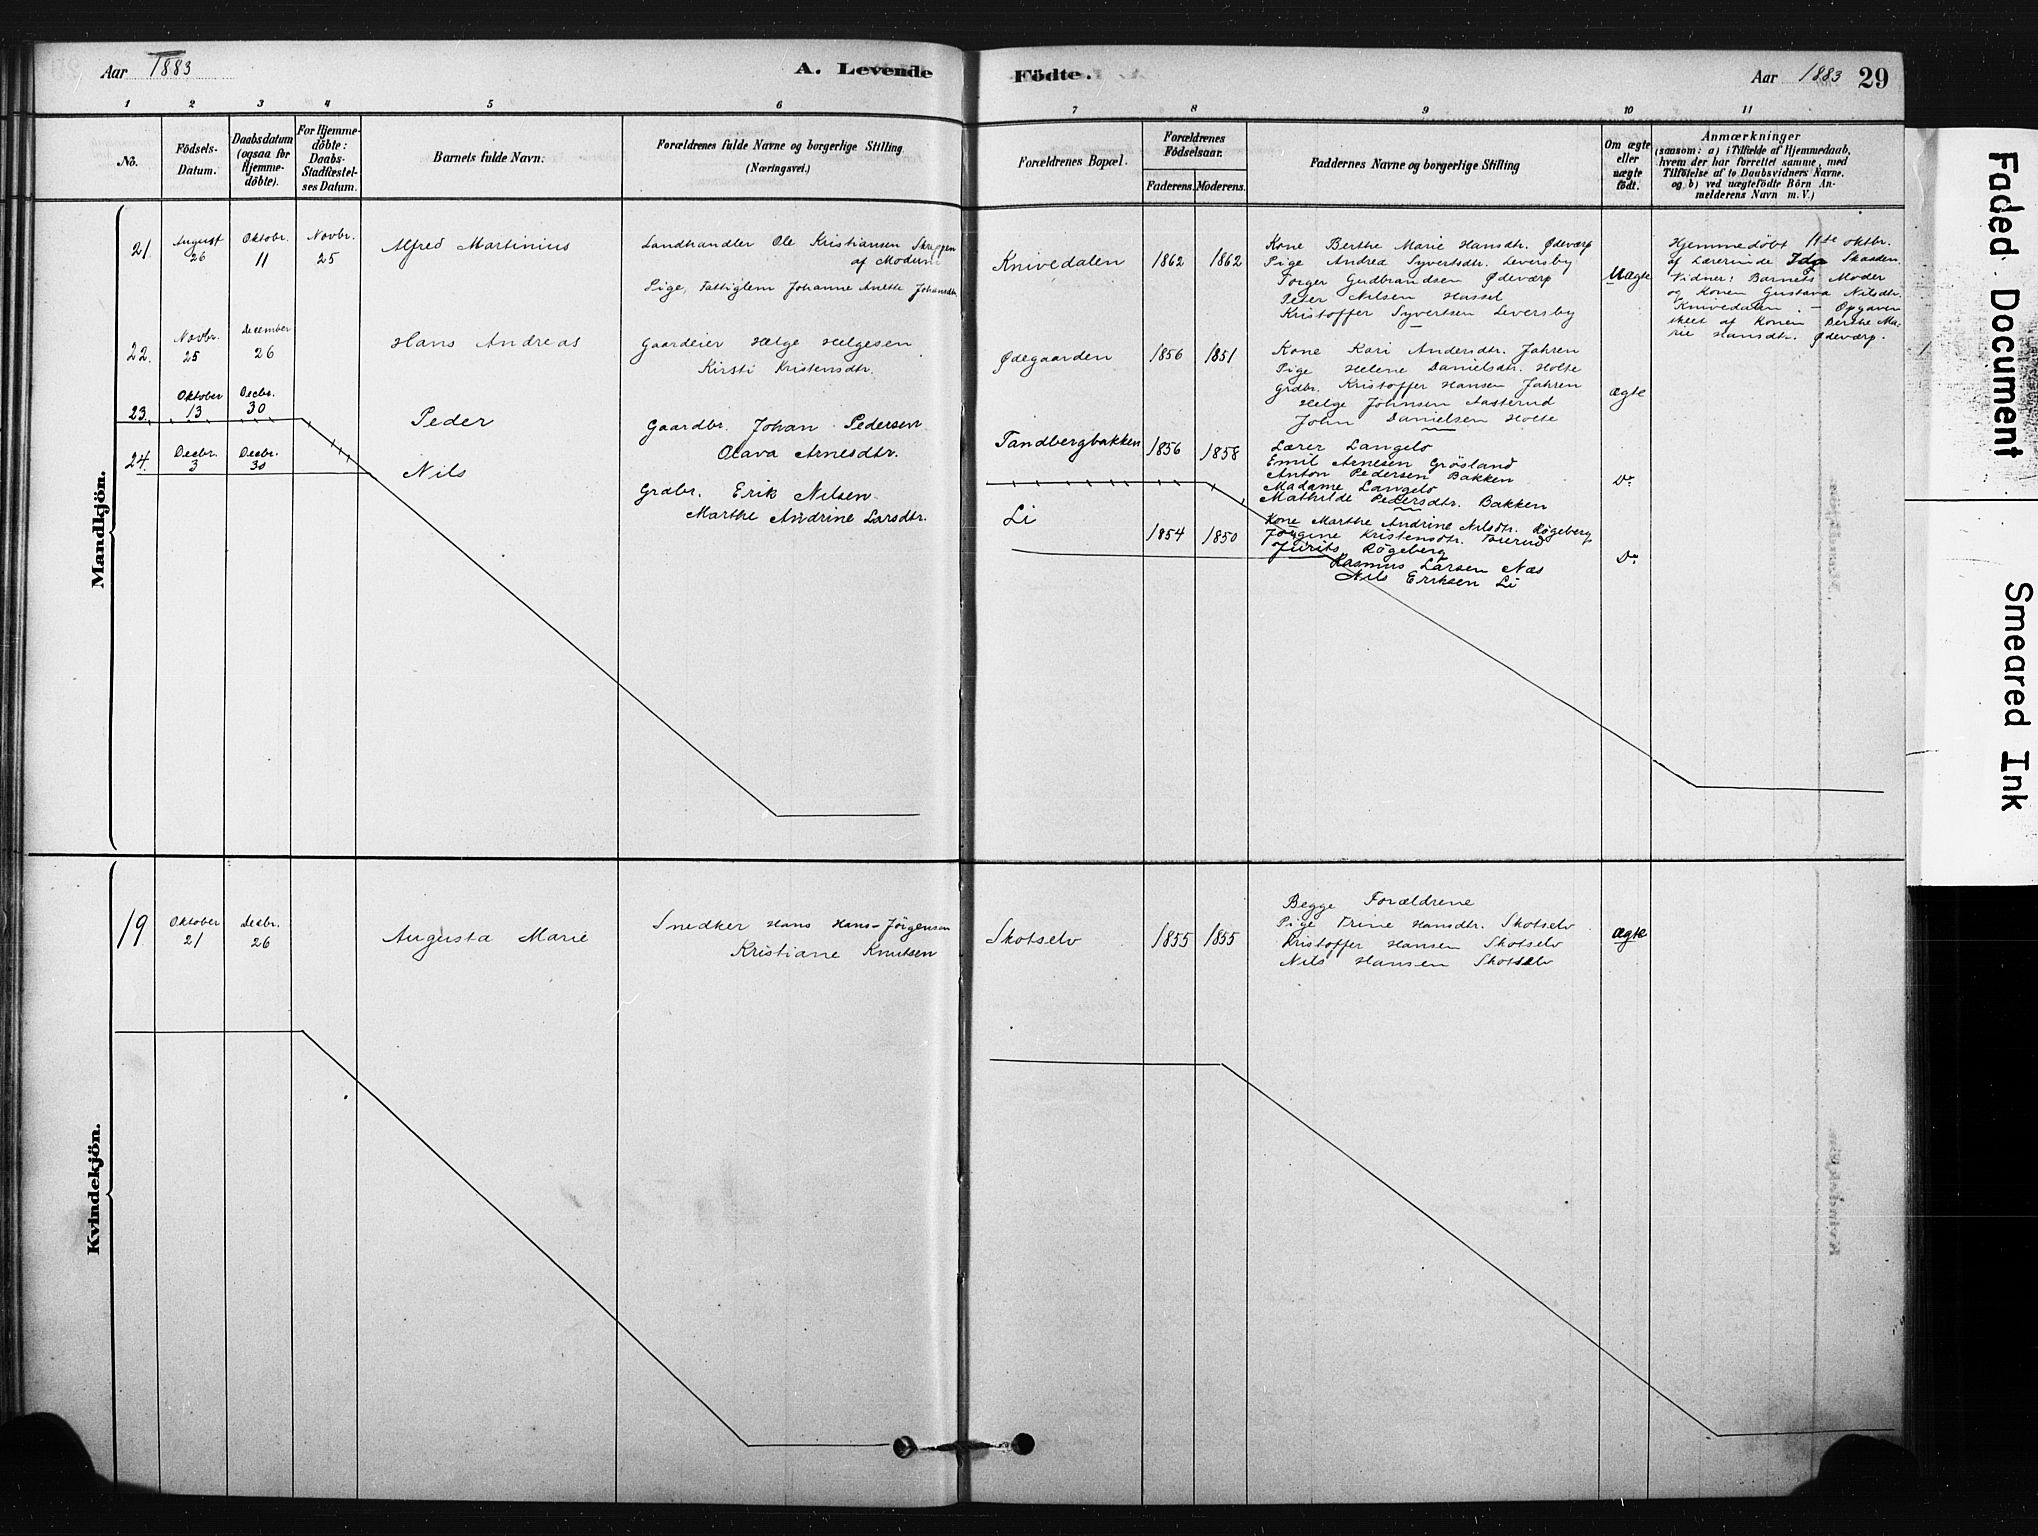 Aar 1883
A. Levende Födte.
Aar 1883 29
1 2 3 4 5 6 7 8 9 10 11
No.
Födsels-
Datum.
Daabsdatum
(ogsaa for
Hjemme-
döbte).
For Hjemme-
döbte:
Daabs-
Stadfæstel-
ses Datum.
Barnets fulde Navn.
Forældrenes fulde Navne og borgerlige Stilling
(Næringsvei.)
Forældrenes Bopæl.
Forældrenes
Födselsaar.
Faderens. Moderens.
Faddernes Navne og borgerlige Stilling
Om ægte
eller
uægte
födt.
Anmærkninger
(saasom: a) i Tilfælde af Hjemmedaab,
hvem der har forrettet samme, med
Tilföielse af to Daabsvidners Navne.
og b) ved uægtefödte Börn An-
melderens Navn m. V.)
Mandkjön.
21.
August
26
Oktobr.
11
Novbr.
25
Alfred Martinius
Landhandler Ole Kristiansen
af Modum
Pige, Fattiglem Johanne Anette Johansdtr.
Knivedalen
1862 1862
Kone Berthe Marie Hansdtr. Ødeværp
Pige Andrea Syvertsdtr. Leversby
Torger Gudbrandsen Ødeværp
Peter Nilsen Hassel
Kristoffer Syvertsen Leversby
Uægte
Hjemmedöbt 11te Oktbr.
af Lærerinde Ida Skaaden
Vidner: Barnets Moder
og Konen Gustava Nilsdtr.
Knivedalen. — Opgaven
skeet af Konen Berthe Ma-
rie Hansdtr. Ødeværp.
22.
Novbr.
25
December
26
Hans Andreas
Gaardeier Helge Helgesen
Kirsti Kristensdtr.
Ødegaarden
1856 1851
Kone Kari Andersdtr. Jahren
Pige Helene Danielsdtr. Holte
Grdbr. Kristoffer Hansen Jahren
Helge Johnsen Aasterud
John Danielsen Holte
Ægte
23.
Oktober
13
Decbr.
30
Peder
Gaardbr. Johan Pedersen
Olava Arnesdtr.
Tandbergbakken
1856 1858
Lærer Langelo
Emil Arnesen Grösland
Anton Pedersen Bakken
Madame Langelo
Mathilde Pedersdtr. Bakken
Do
24.
Decbr.
3
Decbr.
30
Nils
Grdbr. Erik Nilsen
Marthe Andrine Larsdtr.
Li
1854 1850
Kone Marthe Andrine Nilsdtr. Røgeberg
Jörgine Kristensdtr.
Røgeberg
Rasmus Larsen Næs
Nils Eriksen Li
Do
Kvindekjön.
19
Oktober
21
Decbr.
26
Augusta Marie
Snedker Hans Hans-Jörgensen
Kristiane Knutsen
Skotselv
1855 1855
Begge Forældrene
Pige Trine Hansdtr. Skotselv
Kristoffer Hansen Skotselv
Nils Hansen Skotselv
Ægte
Faded Document
Smeared Ink